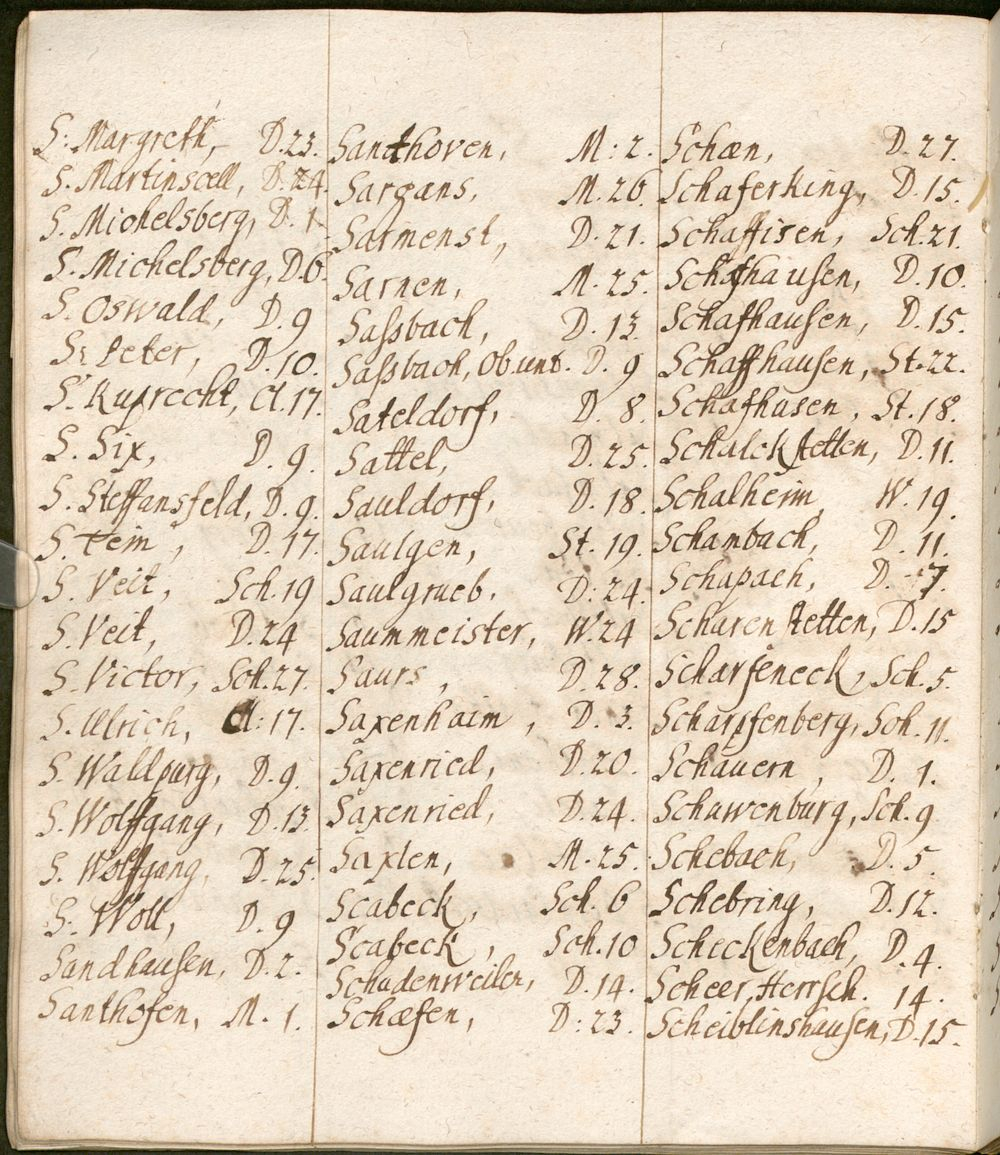 S. Margreth, D. 23.
S. Martinscell, D. 24.
S. Michelsberg, D. 1.
S. Michelsberg, D. 6.
S. Oswald, D. 9
S. Peter, D. 10.
S. Ruprecht, Cl. 17.
S. Six, D. 9.
S. Steffansfeld, D. 9.
S. Tein, D. 17.
S. Veit, Sch. 19
S. Veit, D. 24
S. Victor, Sch. 27.
S. Ulrich, Cl: 17.
S. Waldpurg, D. 9.
S. Wolffgang, D. 13.
S. Wolffgang, D. 25.
S. Woll, D. 9
Sandhausen, D. 2.
Santhofen, M. 1.
Santhoven, M: 2.
Sargans, M. 26.
Sarmenst, D. 21.
Sarnen, M. 25.
Sassbach, D. 13.
Sassbach, Ob. unt. D. 9
Sateldorf, D. 8.
Sattel, D. 25.
Sauldorf, D. 18.
Saulgen, St. 19.
Saulgrueb, D: 24.
Saummeister, W. 24
Saurs, D. 28.
Saxenhaim, D. 3.
Saxenried, D. 20.
Saxenried, D. 24.
Saxlen, M. 25.
Scabeck, Sch. 6
Scabeck, Sch. 10
Schadenweiler, D. 14.
Schæfen, D: 23.
Schæn, D. 27.
Schaferking, D. 15.
Schaffisen, Sch. 21.
Schafhausen, D. 10.
Schafhausen, D. 15.
Schaffhausen, St. 22.
Schafhusen, St. 18.
Schalckstetten, D. 11.
Schalheim, W. 19.
Schambach, D. 11.
Schapach, D. 7.
Scharenstetten, D. 15
Scharfeneck, Sch. 5.
Scharpfenberg, Sch. 11.
Schauern, D. 1.
Schawenburg, Sch. 9
Schebach, D. 5.
Schebring, D. 12.
Scheckenbach, D. 4.
Scheer, Herrsch. 14.
Scheiblinshausen, D. 15.